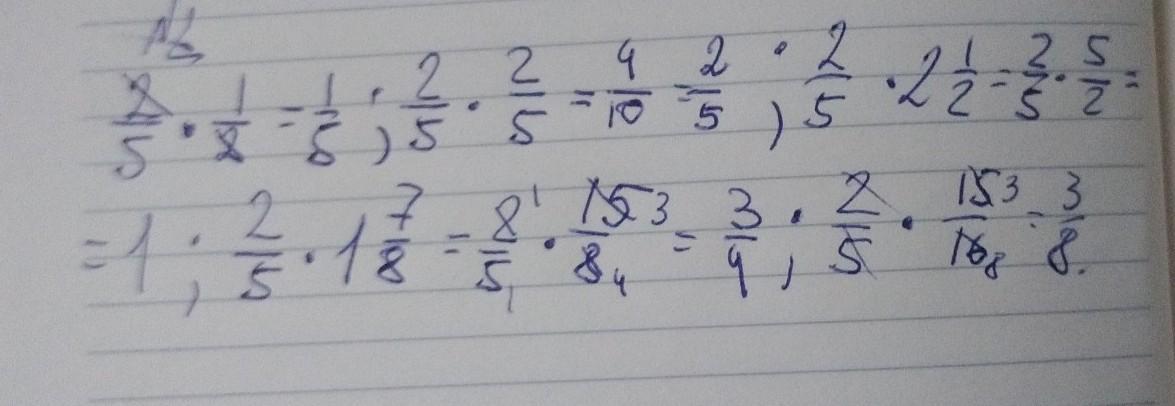 №
2/5 · 1/2 = 1/5 ; 2/5 · 2/5 = 4/10 = 2/5 ; 2/5 · 2 1/2 = 2/5 · 5/2 =
= 1 ; 2/5 · 1 7/8 = 2 1/5 1 · 15 3/8 4 = 3/4 ; 2/5 · 15 3/16 8 = 3/8.